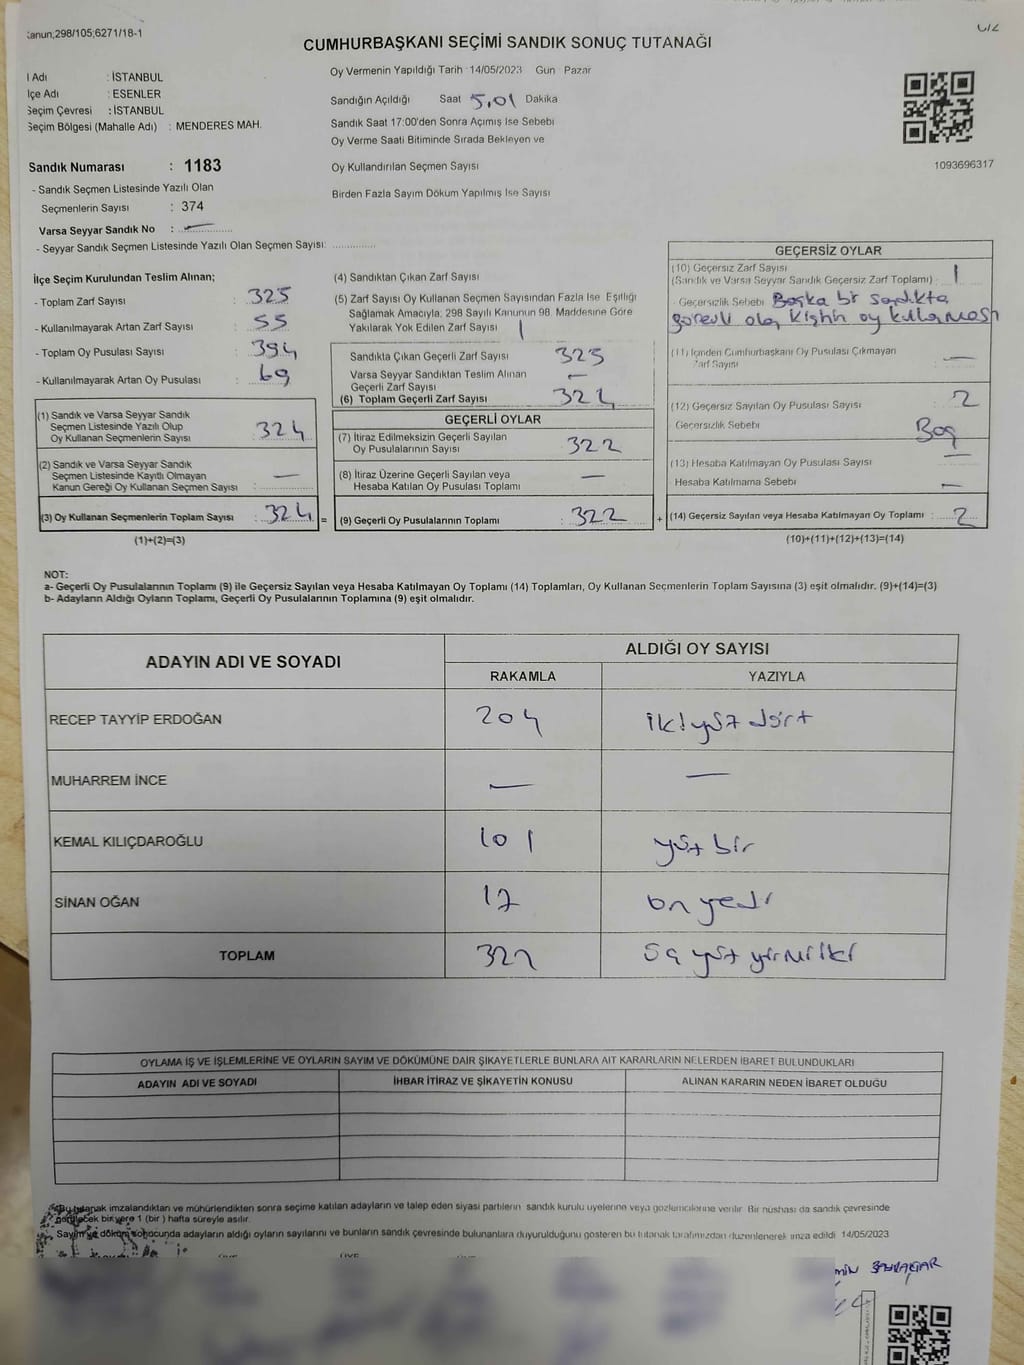 Kanun,298/105;6271/18-1
CUMHURBAŞKANI SEÇİMİ SANDIK SONUÇ TUTANAĞI
İl Adı : İSTANBUL
İlçe Adı : ESENLER
Seçim Çevresi : İSTANBUL
Seçim Bölgesi (Mahalle Adı) : MENDERES MAH.
Sandık Numarası : 1183
- Sandık Seçmen Listesinde Yazılı Olan
Seçmenlerin Sayısı : 374
Varsa Seyyar Sandık No : —
- Seyyar Sandık Seçmen Listesinde Yazılı Olan Seçmen Sayısı: ............
Oy Vermenin Yapıldığı Tarih :14/05/2023 Gün Pazar
Sandığın Açıldığı Saat 5,01 Dakika
Sandık Saat 17:00'den Sonra Açımış İse Sebebi
Oy Verme Saati Bitiminde Sırada Bekleyen ve
Oy Kullandırılan Seçmen Sayısı
Birden Fazla Sayım Döküm Yapılmış İse Sayısı
1093696317
İlçe Seçim Kurulundan Teslim Alınan;
- Toplam Zarf Sayısı : 325
- Kullanılmayarak Artan Zarf Sayısı : 55
- Toplam Oy Pusulası Sayısı : 394
- Kullanılmayarak Artan Oy Pusulası : 69
(1) Sandık ve Varsa Seyyar Sandık
Seçmen Listesinde Yazılı Olup
Oy Kullanan Seçmenlerin Sayısı : 324
(2) Sandık ve Varsa Seyyar Sandık
Seçmen Listesinde Kayıtlı Olmayan
Kanun Gereği Oy Kullanan Seçmen Sayısı : —
(3) Oy Kullanan Seçmenlerin Toplam Sayısı : 324 =
(1)+(2)=(3)
(4) Sandıktan Çıkan Zarf Sayısı
(5) Zarf Sayısı Oy Kullanan Seçmen Sayısından Fazla İse Eşitliği
Sağlamak Amacıyla; 298 Sayılı Kanunun 98. Maddesine Göre
Yakılarak Yok Edilen Zarf Sayısı 1
Sandıkta Çıkan Geçerli Zarf Sayısı 325
Varsa Seyyar Sandıktan Teslim Alınan
Geçerli Zarf Sayısı —
(6) Toplam Geçerli Zarf Sayısı 324
GEÇERLİ OYLAR
(7) İtiraz Edilmeksizin Geçerli Sayılan
Oy Pusulalarının Sayısı : 322
(8) İtiraz Üzerine Geçerli Sayılan veya
Hesaba Katılan Oy Pusulası Toplamı —
(9) Geçerli Oy Pusulalarının Toplamı : 322 +
GEÇERSİZ OYLAR
(10) Geçersiz Zarf Sayısı
(Sandık ve Varsa Seyyar Sandık Geçersiz Zarf Toplamı) : 1
- Geçersizlik Sebebi Başka bir sandıkta
görevli olan Kişinin oy kullanması
(11) İçinden Cumhurbaşkanı Oy Pusulası Çıkmayan
Zarf Sayısı —
(12) Geçersiz Sayılan Oy Pusulası Sayısı 2
Geçersizlik Sebebi Boş
(13) Hesaba Katılmayan Oy Pusulası Sayısı —
Hesaba Katılmama Sebebi —
(14) Geçersiz Sayılan veya Hesaba Katılmayan Oy Toplamı : 2
(10)+(11)+(12)+(13)=(14)
NOT:
a- Geçerli Oy Pusulalarının Toplamı (9) ile Geçersiz Sayılan veya Hesaba Katılmayan Oy Toplamı (14) Toplamları, Oy Kullanan Seçmenlerin Toplam Sayısına (3) eşit olmalıdır. (9)+(14)=(3)
b- Adayların Aldığı Oyların Toplamı, Geçerli Oy Pusulalarının Toplamına (9) eşit olmalıdır.
ADAYIN ADI VE SOYADI ALDIĞI OY SAYISI
RAKAMLA YAZIYLA
RECEP TAYYİP ERDOĞAN 204 ikiyüz dört
MUHARREM İNCE — —
KEMAL KILIÇDAROĞLU 101 yüz bir
SİNAN OĞAN 17 on yedi
TOPLAM 322 üç yüz yirmi iki
OYLAMA İŞ VE İŞLEMLERİNE VE OYLARIN SAYIM VE DÖKÜMÜNE DAİR ŞİKAYETLERLE BUNLARA AİT KARARLARIN NELERDEN İBARET BULUNDUKLARI
ADAYIN ADI VE SOYADI İHBAR İTİRAZ VE ŞİKAYETİN KONUSU ALINAN KARARIN NEDEN İBARET OLDUĞU
Bu tutanak imzalandıktan ve mühürlendikten sonra seçime katılan adayların ve talep eden siyasi partilerin sandık kurulu üyelerine veya gözlemcilerine verilir. Bir nüshası da sandık çevresinde
görülecek bir yere 1 (bir) hafta süreyle asılır.
Sayım ve döküm sonucunda adayların aldığı oyların sayılarını ve bunların sandık çevresinde bulunanlara duyurulduğunu gösteren bu tutanak tarafımızdan düzenlenerek imza edildi 14/05/2023